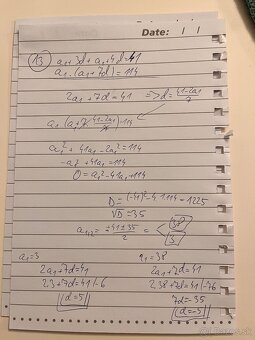 Date: / /
13 a₁+3d+a₁+4d=41
a₁.(a₁+7d)=114
2a₁+7d=41 => d=41-2a₁/7
a₁(a₁+7·41-2a₁/7)=114
a₁²+41a₁-2a₁²=114
-a₁²+41a₁=114
0=a₁²-41a₁+114
D=(-41)²-4·114=1225
√D=35
a₁,₂=+41±35/2=<38
3
a₁=3 a₁=38
2a₁+7d=41 2a₁+7d=41
2·3+7d=41/-6 2·38+7d=41/-76
d=5 7d=-35
d=-5